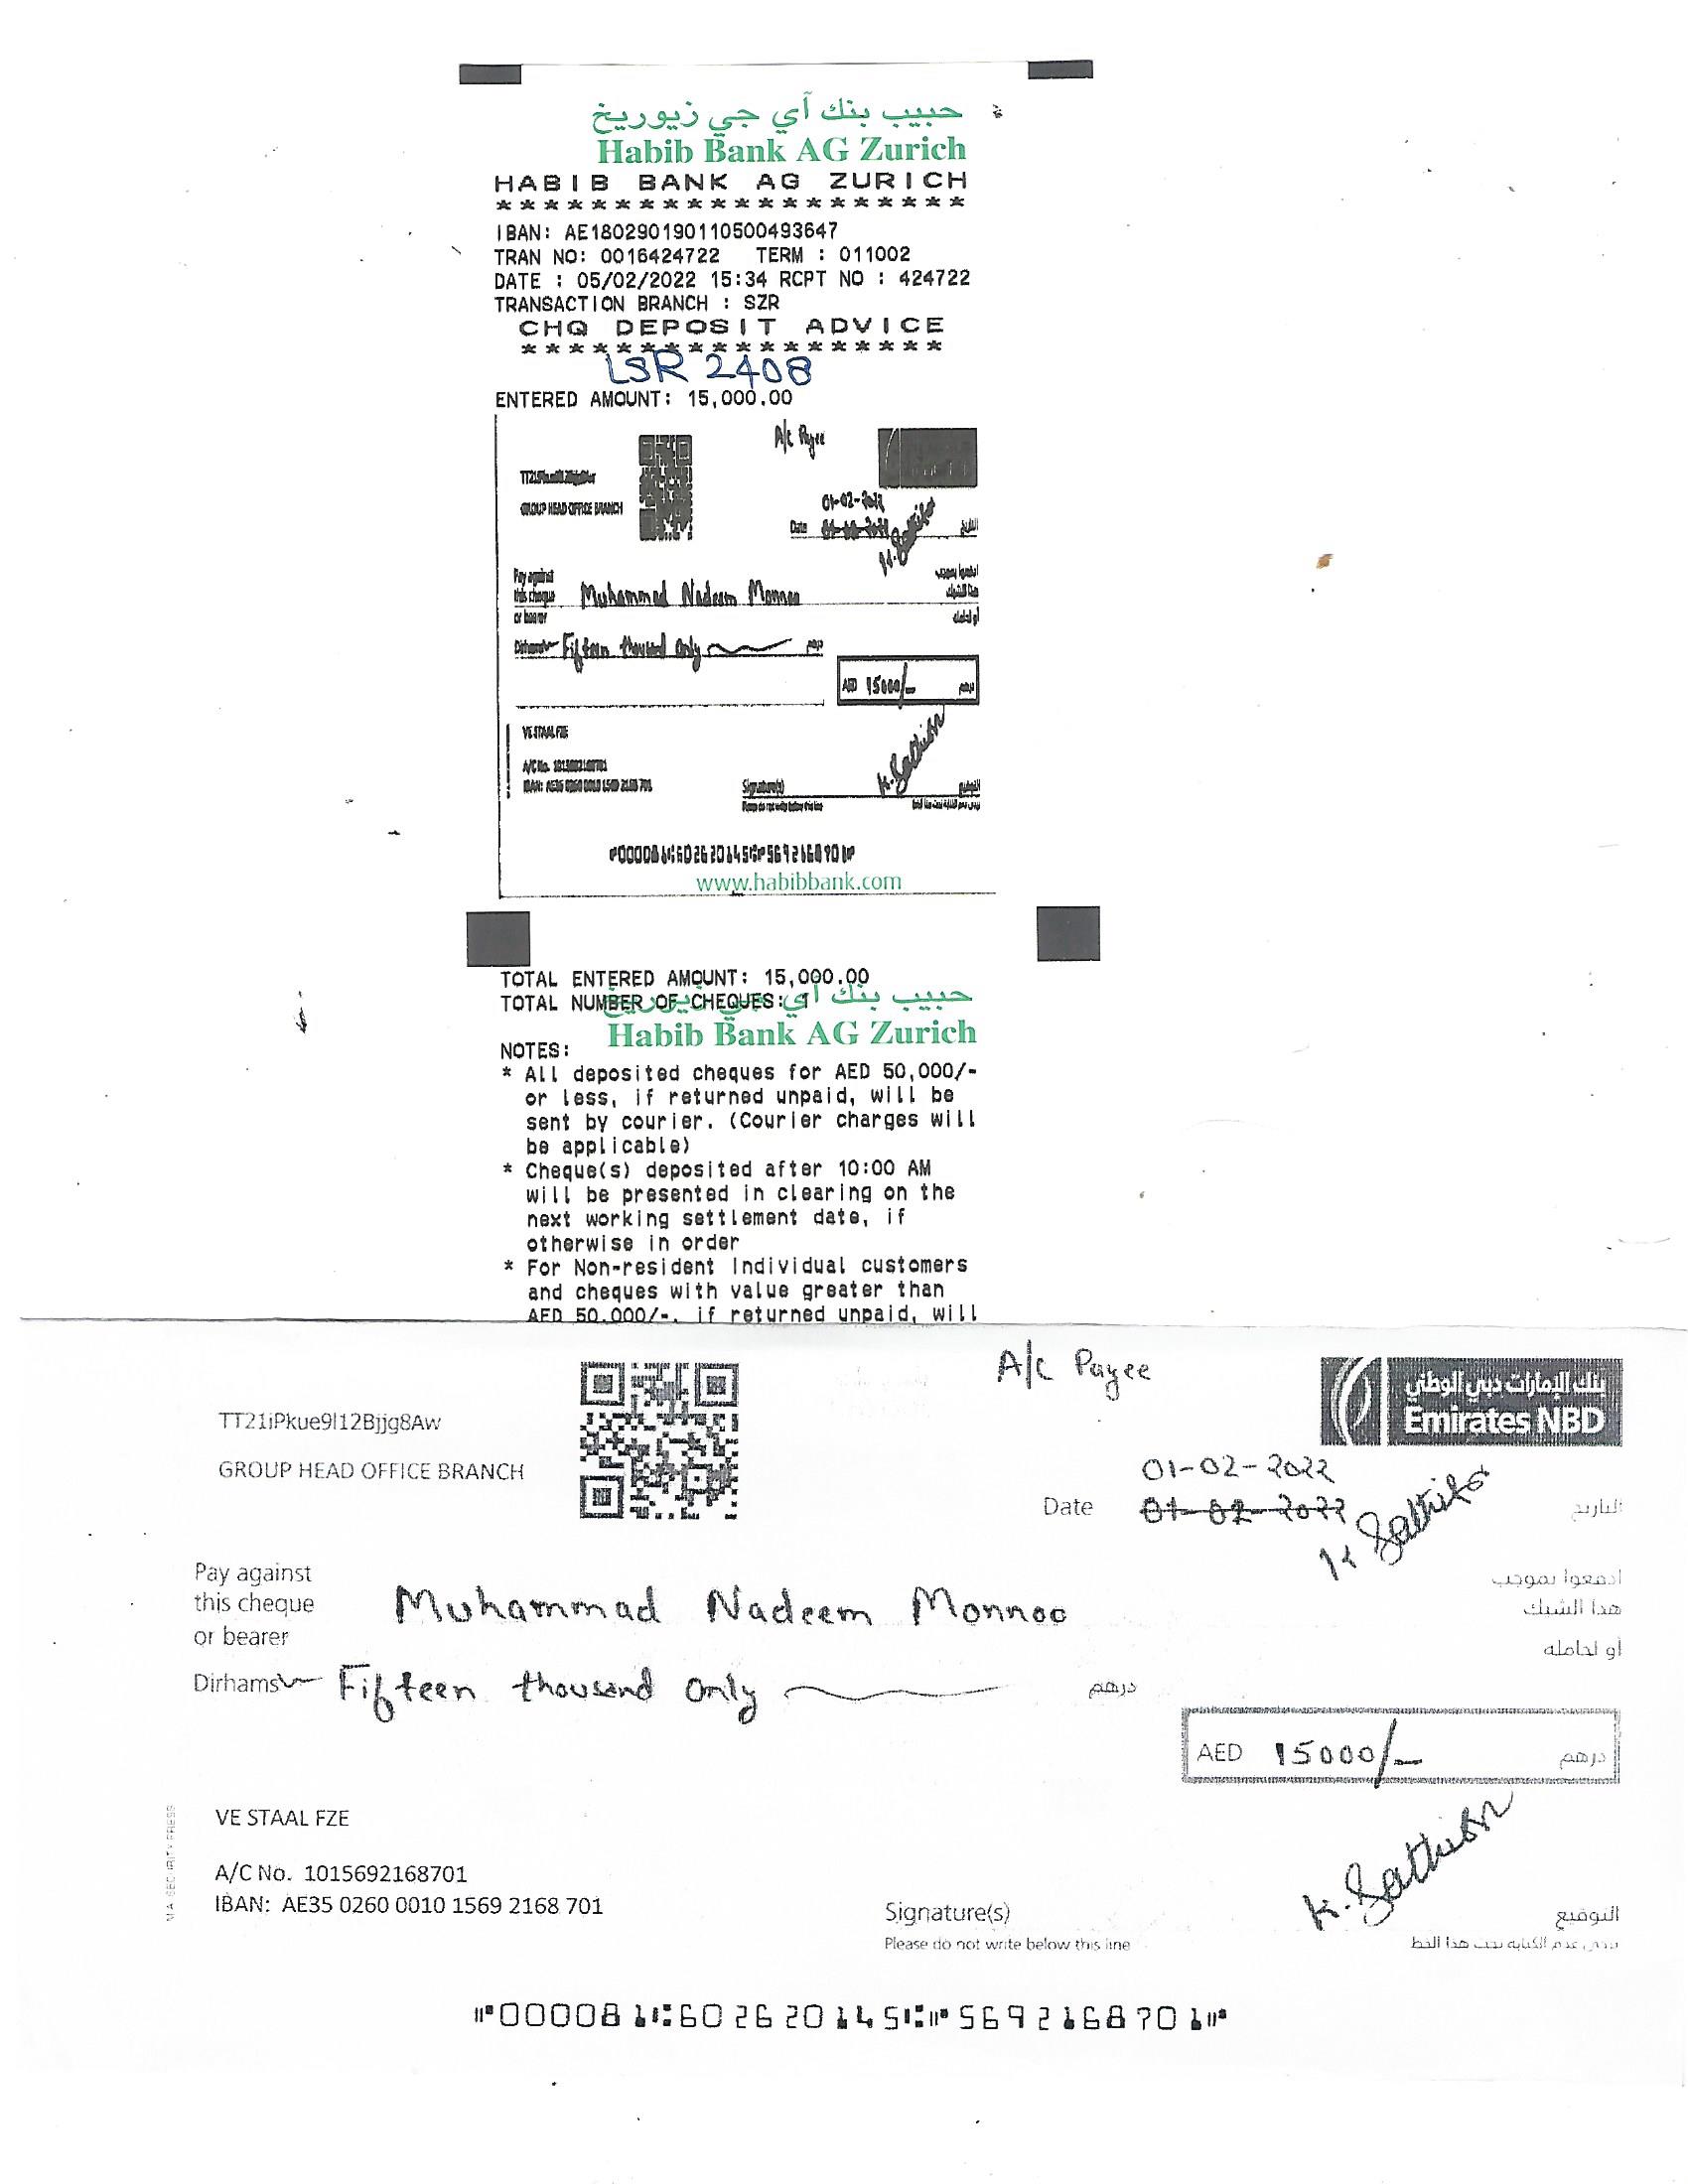 حبيب بنك آي جي زيوريخ
Habib Bank AG Zurich
HABIB BANK AG ZURICH
********************
IBAN: AE180290190110500493647
TRAN NO: 0016424722 TERM : 011002
DATE : 05/02/2022 15:34 RCPT NO : 424722
TRANSACTION BRANCH : SZR
CHQ DEPOSIT ADVICE
******************
LSR 2408
ENTERED AMOUNT: 15,000.00
A/c Payee
GROUP HEAD OFFICE BRANCH
01-02-2022
Date 01-02-2022 التاريخ
K. Sathish
Pay against ادفعوا بموجب
this cheque Muhammad Nadeem Monnoo هذا الشيك
or bearer أو لحامله
Dirhams Fifteen thousand only درهم
AED 15000/- درهم
VE STAAL FZE
A/C No. 1015692168701
IBAN: AE35 0260 0010 1569 2168 701
K. Sathish
Signature(s) التوقيع
Please do not write below this line يرجى عدم الكتابة تحت هذا الخط
⑈000081⑆602620145⑆⑈5692168701⑈
www.habibbank.com
TOTAL ENTERED AMOUNT: 15,000.00
TOTAL NUMBER OF CHEQUES: 1
حبيب بنك آي جي زيوريخ
Habib Bank AG Zurich
NOTES:
* All deposited cheques for AED 50,000/-
or less, if returned unpaid, will be
sent by courier. (Courier charges will
be applicable)
* Cheque(s) deposited after 10:00 AM
will be presented in clearing on the
next working settlement date, if
otherwise in order
* For Non-resident Individual customers
and cheques with value greater than
AED 50,000/-, if returned unpaid, will
A/c Payee
بنك الإمارات دبي الوطني
Emirates NBD
TT21iPkue9l12Bjjg8Aw
GROUP HEAD OFFICE BRANCH
01-02-2022
Date 01-02-2022 التاريخ
K Sathish
Pay against ادفعوا بموجب
this cheque Muhammad Nadeem Monnoo هذا الشيك
or bearer أو لحامله
Dirhams Fifteen thousand only درهم
AED 15000/- درهم
VE STAAL FZE
A/C No. 1015692168701
IBAN: AE35 0260 0010 1569 2168 701
K. Sathish
Signature(s) التوقيع
Please do not write below this line يرجى عدم الكتابة تحت هذا الخط
⑈000081⑆602620145⑆⑈5692168701⑈